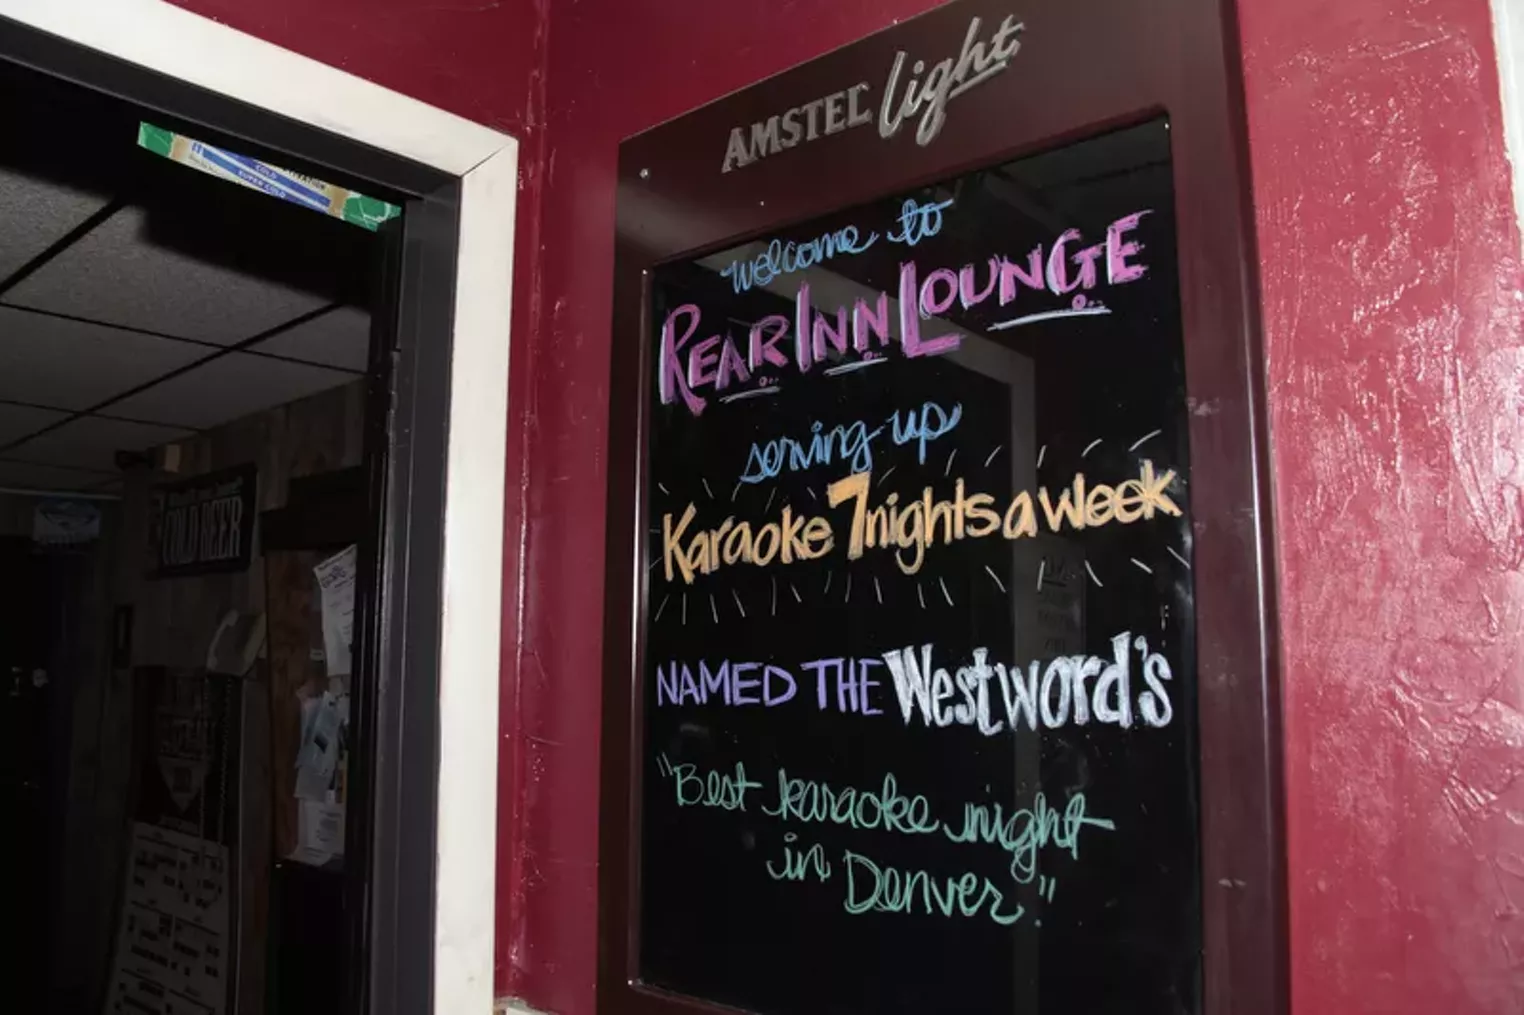 AMSTEL light
welcome to
REAR INN LOUNGE
serving up
Karaoke 7 nights a week
NAMED THE Westword's
"Best karaoke night
in Denver."
COLD
SUPER COLD
COLD BEER